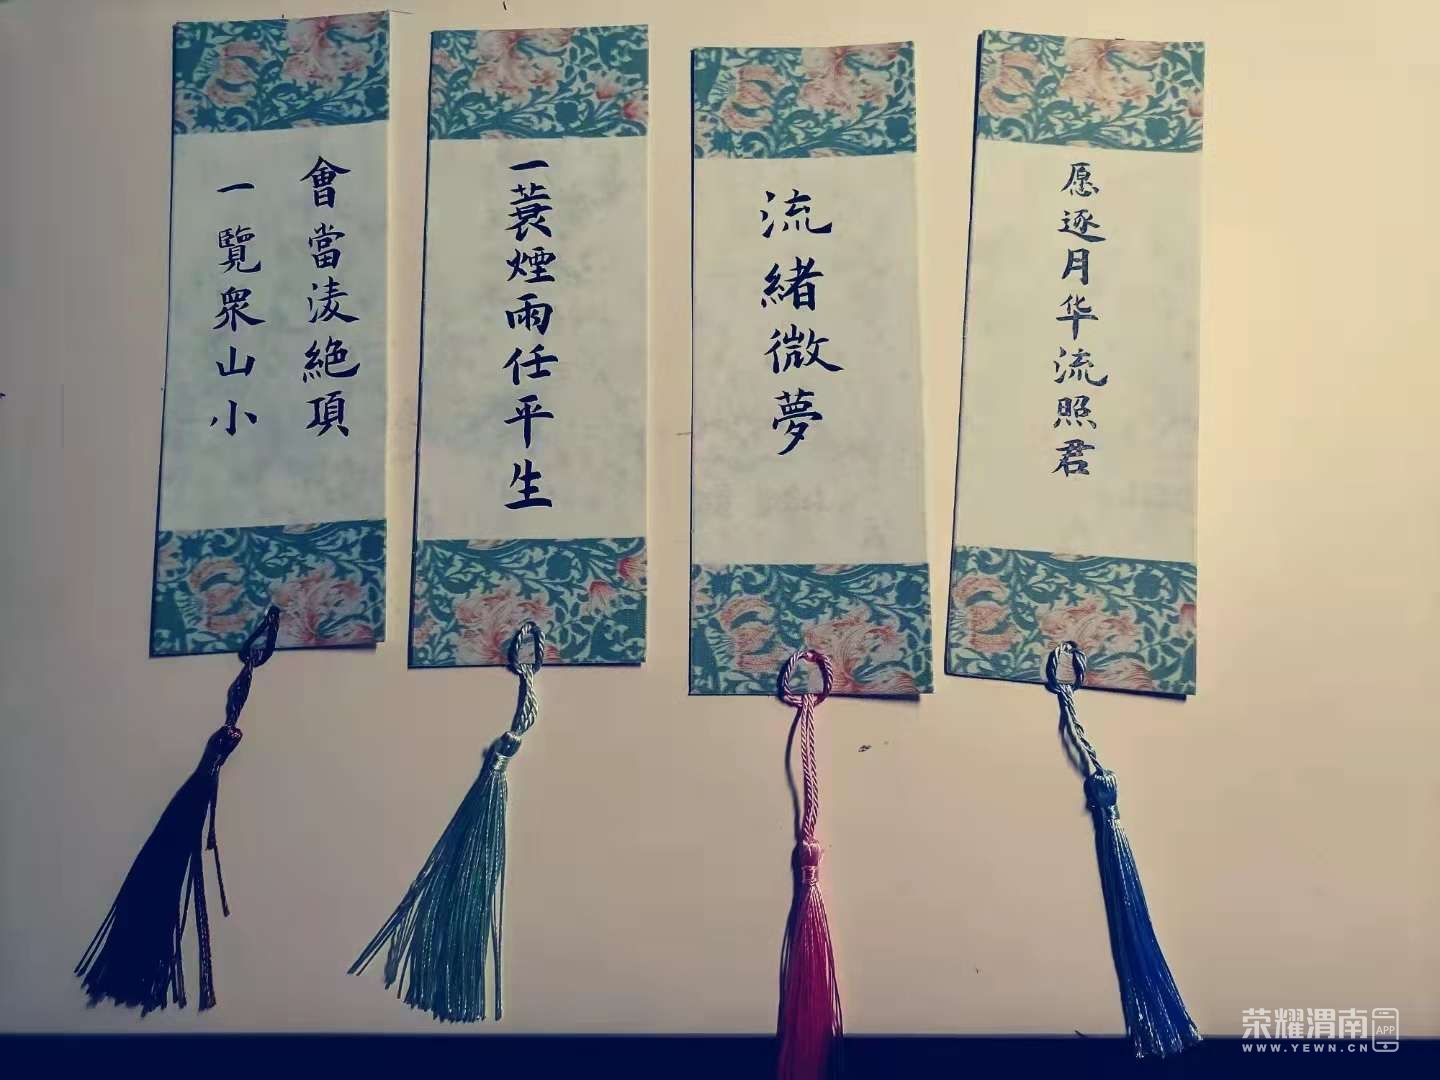 會當淩絶頂
一覽衆山小
一蓑煙雨任平生
流緒微夢
愿逐月华流照君
荣耀渭南
APP
WWW.YEWN.CN